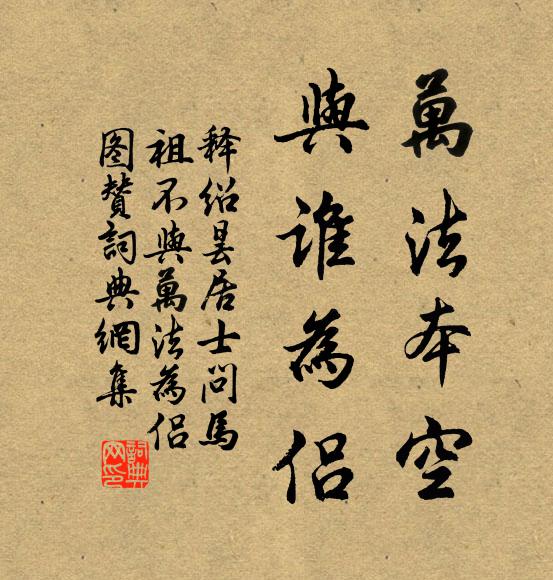 萬法本空
與誰為侶
释绍昙居士问馬
祖不與萬法為侣
图贊詞典網集
詞典
网印